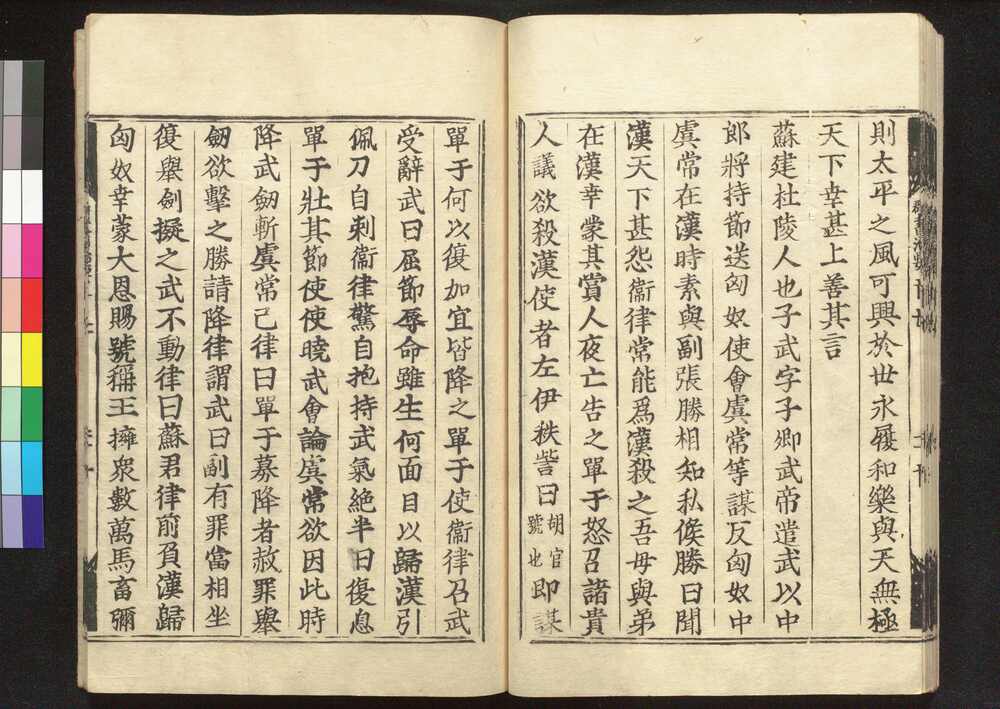 則太平之風可興於世永履和樂與天無極
天下幸甚上善其言
蘇建杜陵人也子武字子卿武帝遣武以中
郎將持節送匈奴使會虞常等謀反匈奴中
虞常在漢時素與副張勝相知私候勝曰聞
漢天下甚怨衞律常能爲漢殺之吾母與弟
在漢幸蒙其賞人夜亡告之單于怒召諸貴
人議欲殺漢使者左伊秩訾曰胡官號也即謀
單于何以復加宜皆降之單于使衞律召武
受辭武曰屈節辱命雖生何面目以歸漢引
佩刀自刺衞律驚自抱持武氣絶半日復息
單于壯其節使使曉武會論虞常欲因此時
降武劒斬虞常已律曰單于募降者赦罪舉
劒欲擊之勝請降律謂武曰副有罪當相坐
復舉劍擬之武不動律曰蘇君律前負漢歸
匈奴幸蒙大恩賜號稱王擁衆數萬馬畜彌